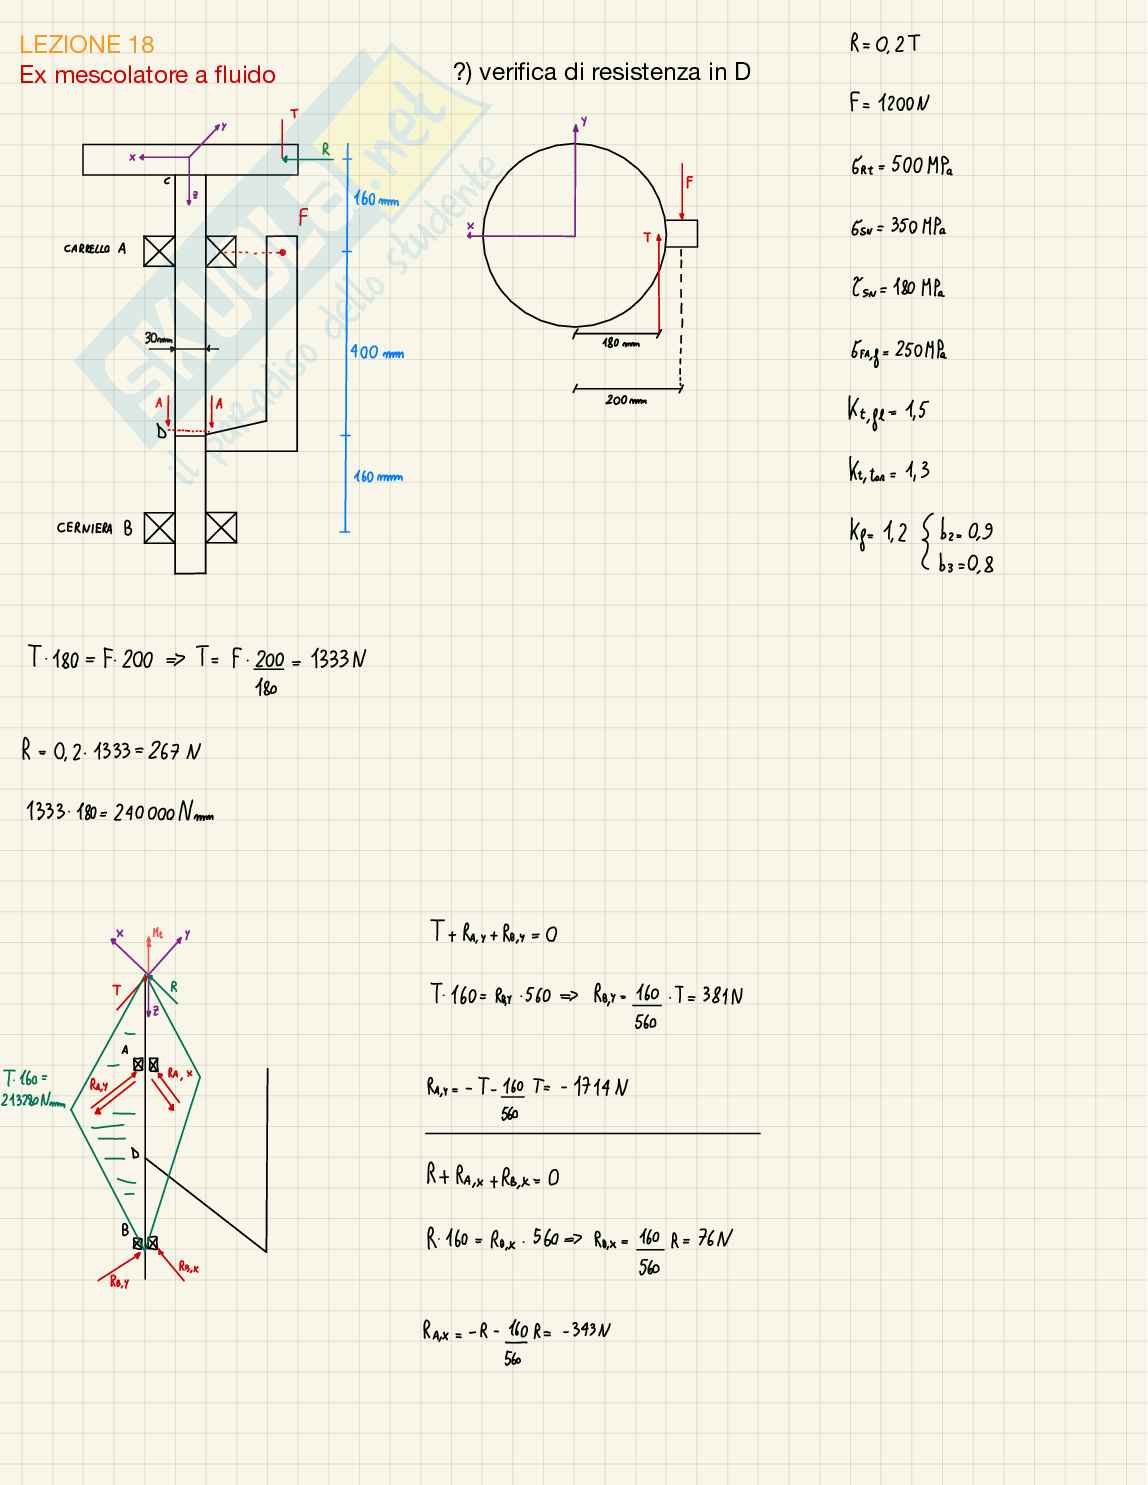 LEZIONE 18
Ex mescolatore a fluido
?) verifica di resistenza in D
R = 0,2 T
F = 1200 N
σRt = 500 MPa
σSN = 350 MPa
τSN = 180 MPa
σFA,f = 250 MPa
Kt,fl = 1,5
Kt,tor = 1,3
Kf = 1,2 { b2 = 0,9
b3 = 0,8
T
y
x
R
C
z
160 mm
F
CARRELLO A
30mm
400 mm
A A
D
160 mm
CERNIERA B
y
F
x
T
180 mm
200 mm
SKUOLA.net
il paradiso dello studente
T · 180 = F · 200 => T = F · 200/180 = 1333 N
R = 0,2 · 1333 = 267 N
1333 · 180 = 240 000 Nmm
x Mt y
T R
z
A
RA,y RA,x
T · 160 =
213280 Nmm
D
B
RB,y RB,x
T + RA,y + RB,y = 0
T · 160 = RB,y · 560 => RB,y = 160/560 · T = 381 N
RA,y = - T - 160/560 T = - 1714 N
R + RA,x + RB,x = 0
R · 160 = RB,x · 560 => RB,x = 160/560 R = 76 N
RA,x = - R - 160/560 R = - 343 N